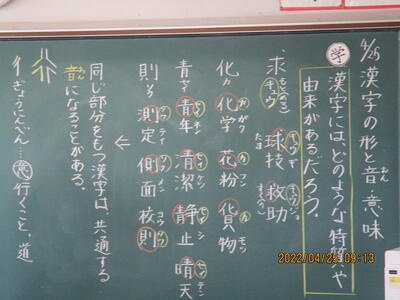 4/25 漢字の形と音・意味
学 漢字には、どのような特質や
由来があるだろう。
求 キュウ もと(める) 球技 キュウギ たま 救助 キュウジョ すく(う)
化 カ 化学 カガク 花粉 カフン 貨物 カモツ
青 セイ 青年 セイネン 清潔 セイケツ 静止 セイシ 晴天 セイテン
則 ソク 測定 ソクテイ 側面 ソクメン 校則 コウソク
↓
同じ部分をもつ漢字は、共通する
音になることがある。
彳 ぎょうにんべん…意 行くこと、道
2022/04/25 09:13